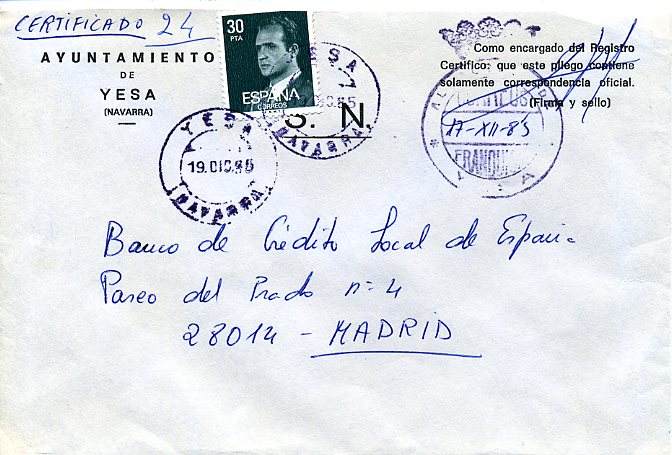 CERTIFICADO 24
AYUNTAMIENTO
DE
YESA
(NAVARRA)
30
PTA
ESPAÑA
CORREOS
S. N
YESA
(NAVARRA)
YESA
19.DIC.85
(NAVARRA)
Como encargado del Registro
Certifico: que este pliego contiene
solamente correspondencia oficial.
(Firma y sello)
17-XII-85
Banco de Crédito Local de España
Paseo del Prado nº 4
28014 - MADRID